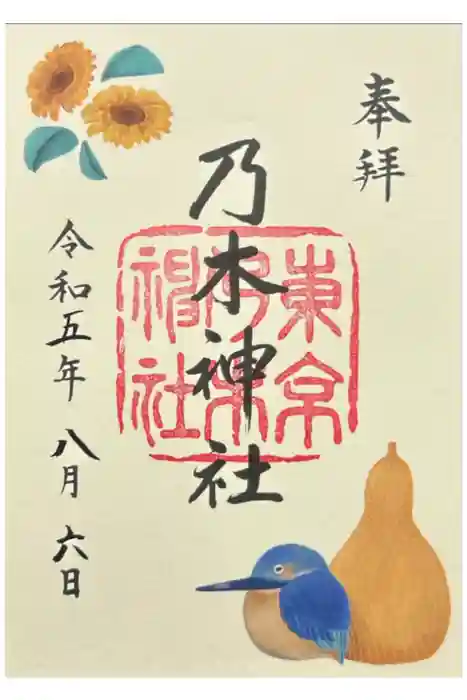 奉拝
乃木神社
東京
乃木
神社
令和五年八月六日